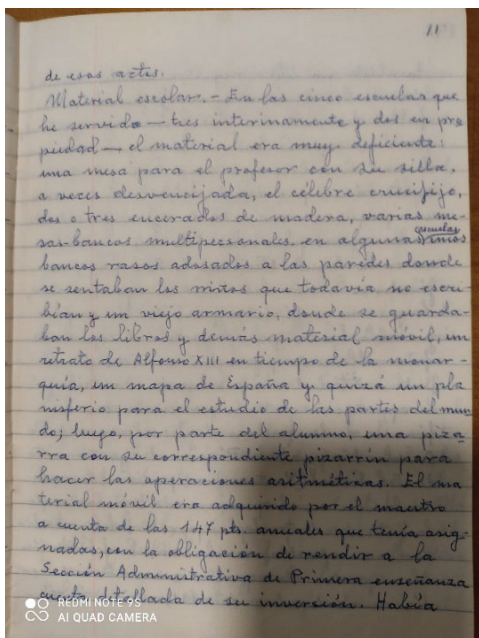 11
de esos actos.
Material escolar. - En las cinco escuelas que
he servido — tres interinamente y dos en pro
piedad — el material era muy deficiente:
una mesa para el profesor con su silla,
a veces desvencijada, el célebre crucifijo,
dos o tres encerados de madera, varias me-
sas-bancos multipersonales, en algunas escuelas unos
bancos rasos adosados a las paredes donde
se sentaban los niños que todavía no escri
bían y un viejo armario, donde se guarda-
ban los libros y demás material móvil, un
retrato de Alfonso XIII en tiempo de la monar-
quía, un mapa de España y quizá un pla
nisferio para el estudio de las partes del mun
do; luego, por parte del alumno, una piza
rra con su correspondiente pizarrín para
hacer las operaciones aritméticas. El ma
terial móvil era adquirido por el maestro
a cuenta de las 147 pts. anuales que tenía asig-
nadas, con la obligación de rendir a la
Sección Administrativa de Primera enseñanza
cuenta detallada de su inversión. Había
REDMI NOTE 9S
AI QUAD CAMERA